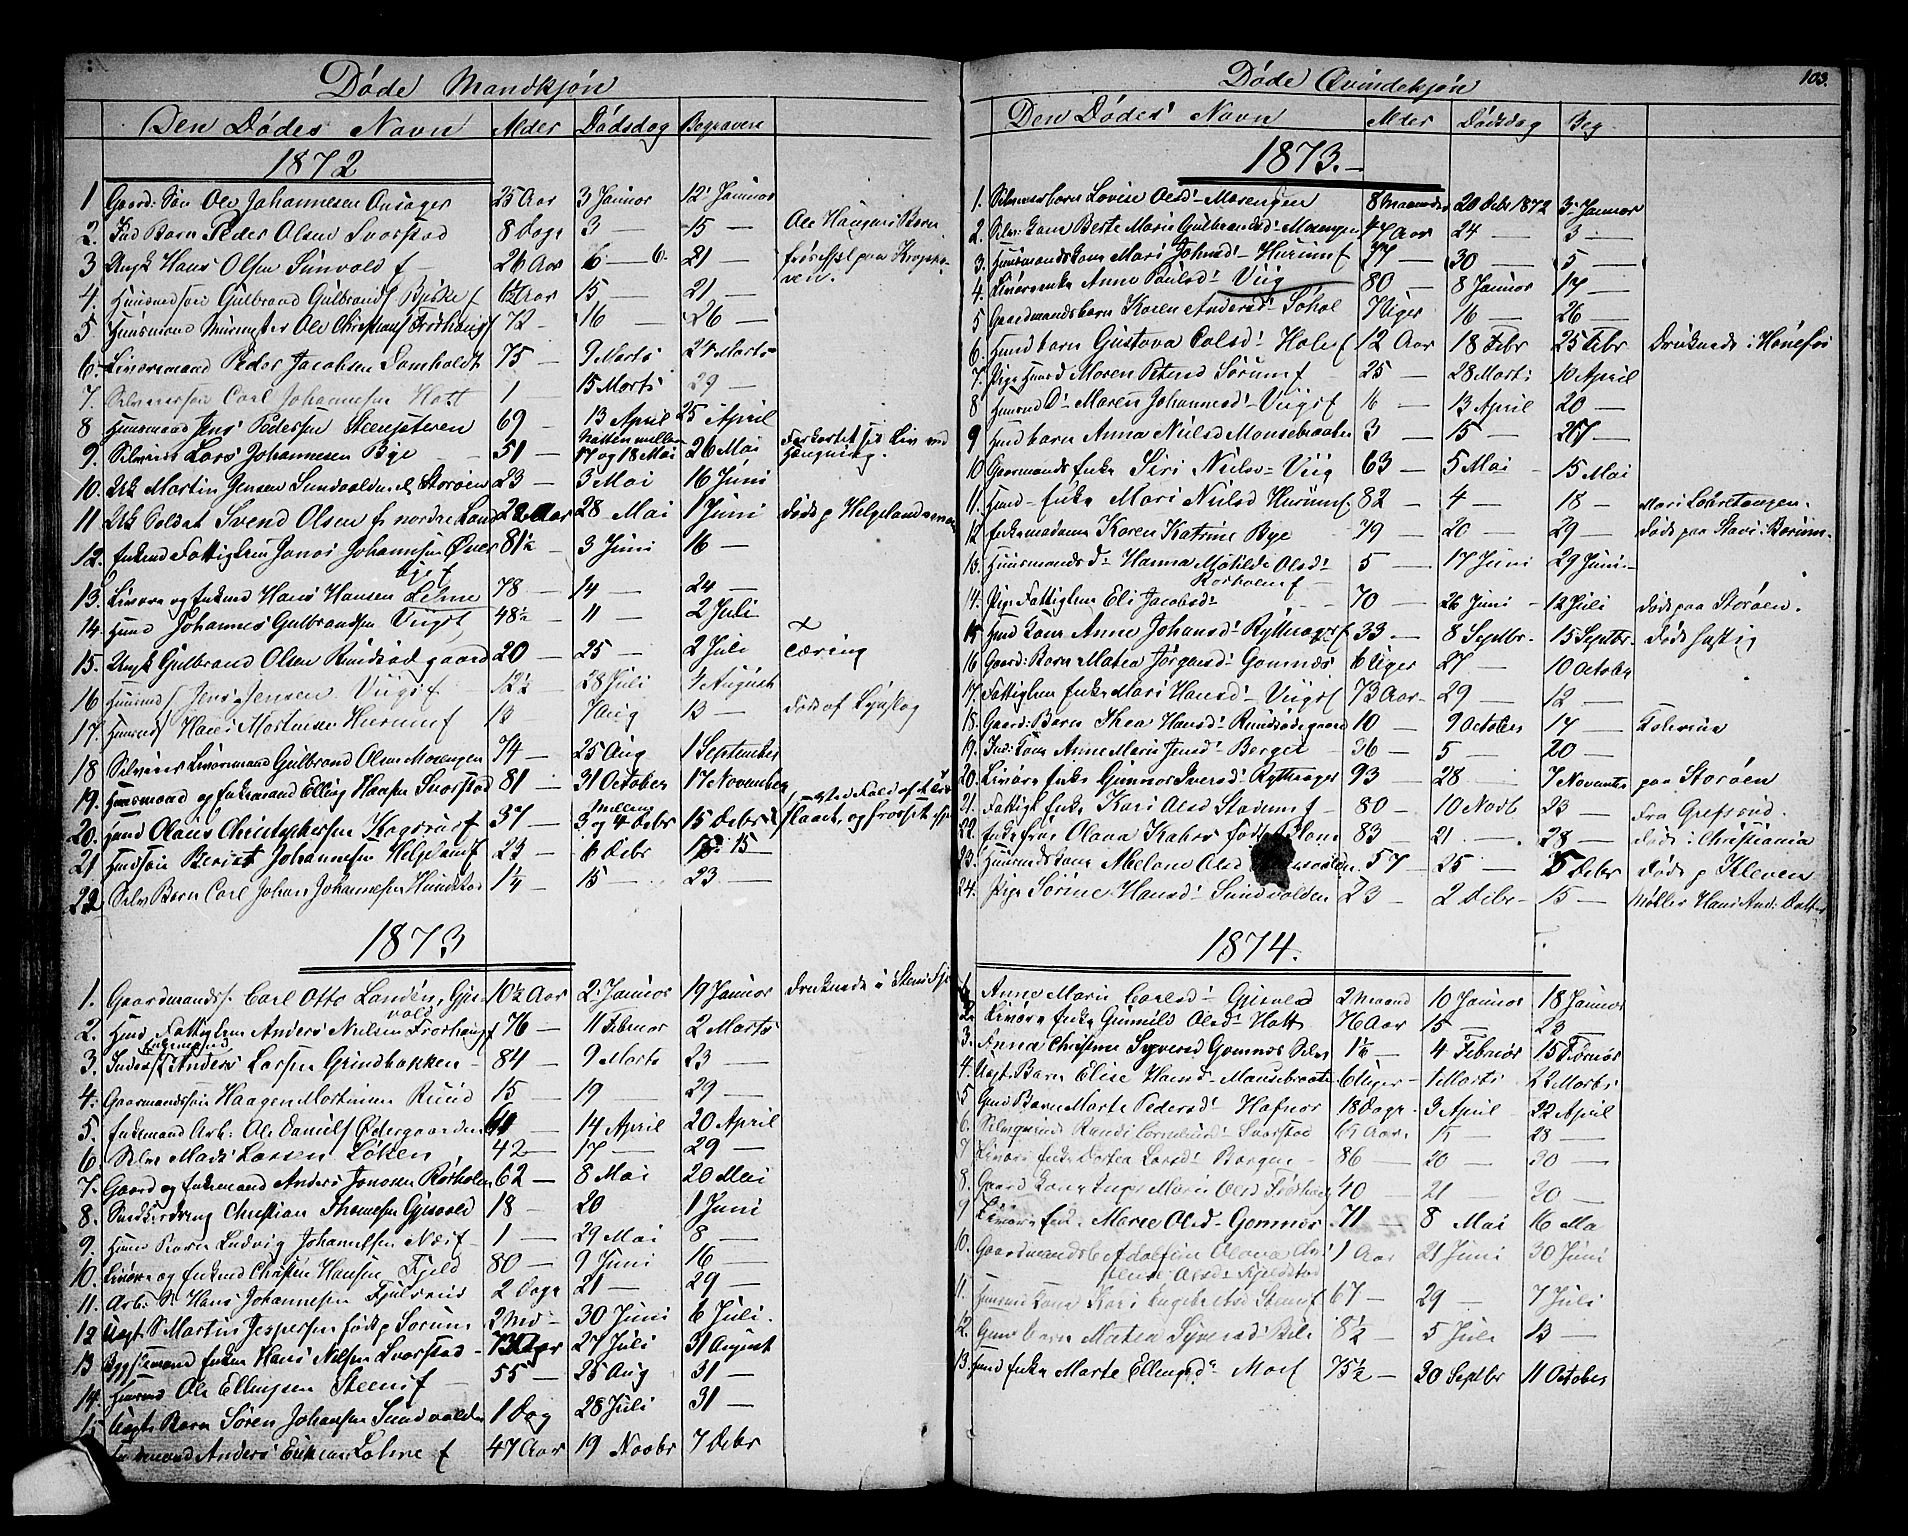 Døde Mandkjøn
Den Dødes Navn Alder Dødsdag Begravne
1872
1 Gaard: Søn Ole Johannesen Onsager 25 Aar 3 Januor 12' Januor
2. Ind Barn Peder Olsen Svarstad 8 Dage 3 — 15 — Ole Haugens Barn
3 Ungk Hans Olsen Sunvold f 26 Aar 6 — 6. 21 —
4. Huusmdsøn Gulbrand Gulbrands Bjerke f Aar 15 — 21 —
5 Huusmand Murmester Ole Christians Frøshaugf 72 - 16 — 26 —
6. Livøresmand Peder Jacobsen Lamholdt 75 — 9 Marts 24 Marts
7. Selveiersøn Carl Johannesen Hatt 1 — 15 Marts 29 —
8 Huusmand Jens Pedersen Steensæteren 69 - 13 April 25 April
9. Selveier Lars Johannesen Bye 51 — Natten mellem 17 og 18 Mai 26 Mai Forkortet sit Liv ved Hængning.
10. Uk Martin Jensen Sundvolden d. Storøen 23 — 5 Mai 16 Juni
11 Uk Soldat Svend Olsen f nordre Land 22 Aar 28 Mai 1 Juni Død p Helgelandsmoen
12. Enkemd Fattiglem Jonas Johannesen Øver 81½ 3 Juni 16 —
13. Livøre og Enkemd Hans Hansen Lehne 78 14 — 24 —
14. Husmd Johannes Gulbrandsen Viigsf 48½ 11 — 2 Juli
15. Ungk Gulbrand Olsen Rundsødgaard 20 — 25 — 2 Juli Tæring
16 Huusmd f Jens Jensen Viigsf 12½ 28 Juli 4 August
17. Huusmd Hans Mortensen Hurumf 13 7 Aug 13 — død af Lynslag
18 Selveier Livøresmand Gulbrand Olsen Morengen 74 — 25 Aug 1 September
19. Huusmand og Enkemand Elling Hansen Svarstad 81 — 31 October 17 November
20. Husmd Olaus Christophersen Kagsrud f 37 — mellem 3 og 4 Debr 15 Debr
21 Husmdsøn Bernt Johannesen Helgelandf 23 — 6 Debr 15 —
22 Selv Barn Carl Johan Johannesen Hundstad 1¼ — 15 — 23 —
1873
1. Gaardmands. Carl Otto Landén, Gjesvold 10½ Aar 2 Januor 19 Januor Druknede i Steensfj
2. Husmd Fattiglem Anders Nielsen Frøshaugf 76 — 11 Februor 2 Marts
3. Inderst Enkemand Anders Larsen Grindbakken 84 — 9 Marts 23 —
4. Gaarmandssøn Haagen Mortinsen Ruud 15 — 19 — 29 —
5. Enkemand Arb: Ole Daniels Ødergaarden 61 14 April 20 April
6. Selv Mads Larsen Løken 42 — 17 — 29 —
7. Gaard og Enkemand Anders Jonasen Rørholm 62 — 8 Mai 20 Mai
8. Smedk:dreng Christian Thomesen Gjesvold 18 — 20 1 Juni
9. Huus Barn Ludvig Johannesen Næsf 1 — 29 Mai 8 —
10. Livøre og Enkmd Christen Hansen Fjeld 80 — 9 Juni 16 —
11. Arb: S. Hans Johannesen Fjulsrud 2 Dage 21 — 29 —
12 Uægt S Martin Jespersen født p Sørum 2 Md — 30 Juni 6 Juli.
13 Bygselmand Enkem Hans Nilsen Svarstad 73 Aar 27 Juli 31 August
14. Huusmd Ole Ellingsen Steensf 55 — 25 Aug 31 —
15 Uægt Barn Søren Johansen Sundvolden 1 Dag 28 Juli 31 —
Huusmand Anders Eriksen Lehne f 47 Aar 19 Novbr 7 Debr
Døde Qvindekjøn 103.
Den Dødes' Navn Alder Dødsdag Beg.
1873.
1. Selveiersbarn Lovise Olsd Morengen 8 Maaneder 20 Debr 1872 3. Januor
2. Selv: Kone Berte Marie Gulbrandsd Morengen 47 Aar 24 — 3 —
3. Huusmandskone Mari Johnsd Hurumf 37 — 30 — 5 —
4. Livøreenke Anne Paulsd Viig 80 — 8 Januor 17 —
5 Gaardmandsbarn Karen Andersd Søhol 7 Uger 16 — 26 —
6. Husmd barn Gustava Carlsd Holef 12 Aar 18 Febr 25 Febr Druknede i Hønefos
7. Pige Husmd Maren Petersd Sørumf 25 — 28 Marts 10 April
8 Huusmd D. Maren Johannesd Viigsf 16 — 13 April 20 —
9 Husmd barn Anna Nielsd Mansebraaten 3 — 15 — 27 —
10 Gaarmands Enke Siri Nielsd Viig 63 — 5 Mai — 15 Mai
11. Husmd Enke Mari Nielsd Hurumf. 82 — 4 — 18 —
12 Enkemadame Karen Katrine Bye 79 — 20 — 29 — Døde paa Stavi i Bærum.
13. Huusmands D. Hanna Matilde Olsd Rørholm f 5 — 17 Juni 29 Juni
14. Pige Fattiglem Eli Jacobsd 70 — 26 Juni 12 Juli Død paa Storøen.
15 Husmd Kone Anne Johansd Rytterager f 33 — 8 Septbr. 15 Septbr. Døde hastig
16 Gaard: Barn Matea Jørgensd Gomnæs 6 Uger 27 — 10 October
17. Fattiglem Enke Mari Hansd Viigsf 73 Aar — 29 — 12 —
18. Gaard: Barn Thea Hansd Rundsødegaard 10 — 9 October 17 —
19. Ind: Kone Anne Marie Jensd Berget 36 — 5 — 20 —
20. Livøre Enke Gunnor Iversd Rytterager 93 — 28 — 7 November paa Storøen
21. Fattigl: Enke Kari Olsd Stademf 80 — 10 Novb 23 — Fra Grefsrud.
22. Enkefrue Olava Kahrs født Hone 83 — 21 — 28 — Døde i Christiania
23. Huusmdskone Malene Olsd 57 — 25 — 5 Debr Døde p Kleven
24. Pige Sørine Hansd Sundvolden 23 — 2 Debr — 15 — Møller Hans And: Datter
1874.
Anne Marie Carlsd Gjesvold 2 Maaned 10 Januor 18 Januor
2. Livøre Enke Gunnild Olsd Hatt 76 Aar 15 — 23 —
3. Anna Christine Syversd Gomnæs Selv 4 Februor 15 Februor
4. Uægt Barn Elise Hansd Mansebraaten 6 Uger 1 Marts 22 Marts
5 Gmd Barn Marte Pedersd Hafnor 18 Dage 3 April 22 April
6. Selvqvinde Randi Corneliusd Svarstad 15 — 28 —
7 Livøre Enke Dortea Larsd Borgen 86 — 20 — 30 —
8. Gaard Kone Inger Marie Olsd Frøshaug 40 — 21 — 30 —
9 Livøre En. Maree Olsd Gomnæs 71 — 8 Mai 16 Ma
10. Gaardmandsb Adolfine Olava Olsd Fjeldstad 1 Aar 21 Juni 30 Juni
11. Huusmd Kone Kari Engebretsd Steensf 67 — 29 — 7 Juli
12. Gmds barn Matea Syversd Bili 8½ — 5 Juli 13 —
13. Husmd Enke Marte Ellingsd Moef 75½ — 30 Septbr 11 October